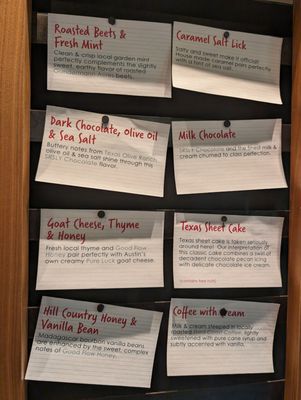 Roasted Beets &
Fresh Mint
Clean & crisp local garden mint
perfectly complements the slightly
sweet, earthy flavor of roasted
Acres beets.
Caramel Salt Lick
Salty and sweet make it official!
House made caramel pairs perfectly
with a hint of sea salt.
Dark Chocolate, olive Oil
& Sea Salt
Buttery notes from Texas Olive Ranch
olive oil & sea salt shine through this
SRSLY Chocolate flavor.
Milk Chocolate
SRSLY Chocolate and the finest milk &
cream churned to class perfection.
Goat Cheese, Thyme
& Honey
Fresh local thyme and Good Flow
Honey pair perfectly with Austin's
own creamy Pure Luck goat cheese.
Texas Sheet Cake
Texas sheet cake is taken seriously
around here! Our interpretation of
this classic cake combines a swirl of
decadent chocolate pecan icing
with delicate chocolate ice cream.
(contains tree nuts)
Hill Country Honey &
Vanilla Bean
Madagascar bourbon vanilla beans
are enhanced by the sweet, complex
notes of Good Flow Honey.
Coffee with Cream
Milk & cream steeped in locally
roasted Coffee, lightly
sweetened with pure cane syrup and
subtly accented with vanilla.